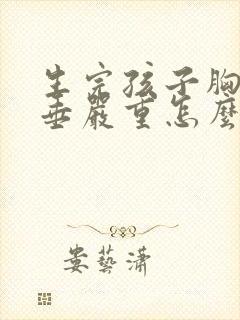 生完孩子胸
垂嚴重怎麼
婁藝瀟